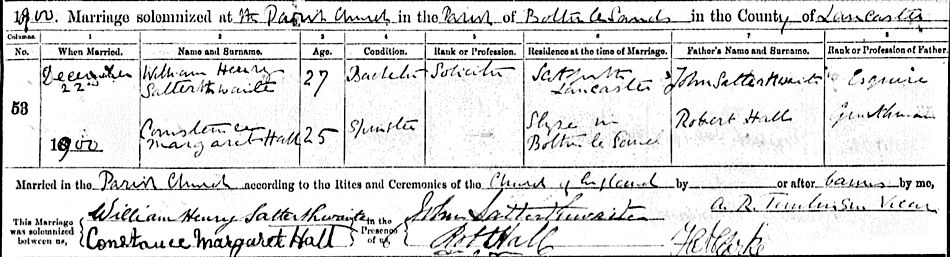 1900. Marriage solemnized at the Parish Church in the Parish of Bolton le Sands in the County of Lancaster
Columns. 1 2 3 4 5 6 7 8
No. When Married. Name and Surname. Age. Condition. Rank or Profession. Residence at the time of Marriage. Father's Name and Surname. Rank or Profession of Father.
53
December 22nd 1900
William Henry Satterthwaite 27 Bachelor Solicitor Lancaster John Satterthwaite Esquire
Constance Margaret Hall 25 Spinster Slyne in Bolton le Sands Robert Hall Gentleman
Married in the Parish Church according to the Rites and Ceremonies of the Church of England by or after banns by me,
A. R. Tomlinson Vicar
This Marriage was solemnized between us,
William Henry Satterthwaite
Constance Margaret Hall
in the Presence of us,
John Satterthwaite
Robt Hall